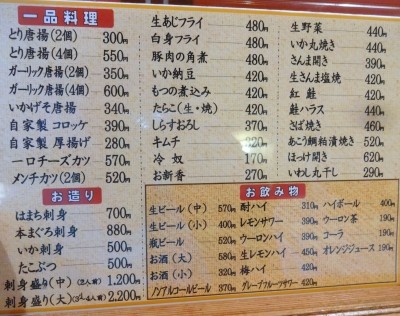 一品料理
とり唐揚(2個) 300円
とり唐揚(4個) 550円
ガーリック唐揚(2個) 350円
ガーリック唐揚(4個) 600円
いかげそ唐揚 340円
自家製 コロッケ 390円
自家製 厚揚げ 280円
一口チーズカツ 570円
メンチカツ(2個) 520円
お造り
はまち刺身 700円
本まぐろ刺身 880円
いか刺身 500円
たこぶつ 500円
刺身盛り(中)(2人前) 1.200円
刺身盛り(大)(3~4人前) 2.200円
生あじフライ 480円
白身フライ 480円
豚肉の角煮 480円
いか納豆 420円
もつの煮込み 420円
たらこ(生・焼) 420円
しらすおろし 370円
キムチ
冷奴 170円
お新香 270円
生野菜 440円
いか丸焼き 440円
さんま開き 390円
生さんま塩焼 420円
紅鮭 420円
鮭ハラス 440円
さば焼き 460円
あこう鯛粕漬焼き 520円
ほっけ開き 620円
いわし丸干し 290円
お飲み物
生ビール(中) 570円
生ビール(小) 400円
瓶ビール 520円
お酒(大) 580円
お酒(小) 320円
ノンアルコールビール 370円
酎ハイ 310円
レモンサワー 390円
ウーロンハイ 390円
生レモンハイ 450円
梅ハイ 420円
グレープフルーツサワー 420円
ハイボール 400円
ウーロン茶 190円
コーラ 190円
オレンジジュース 190円